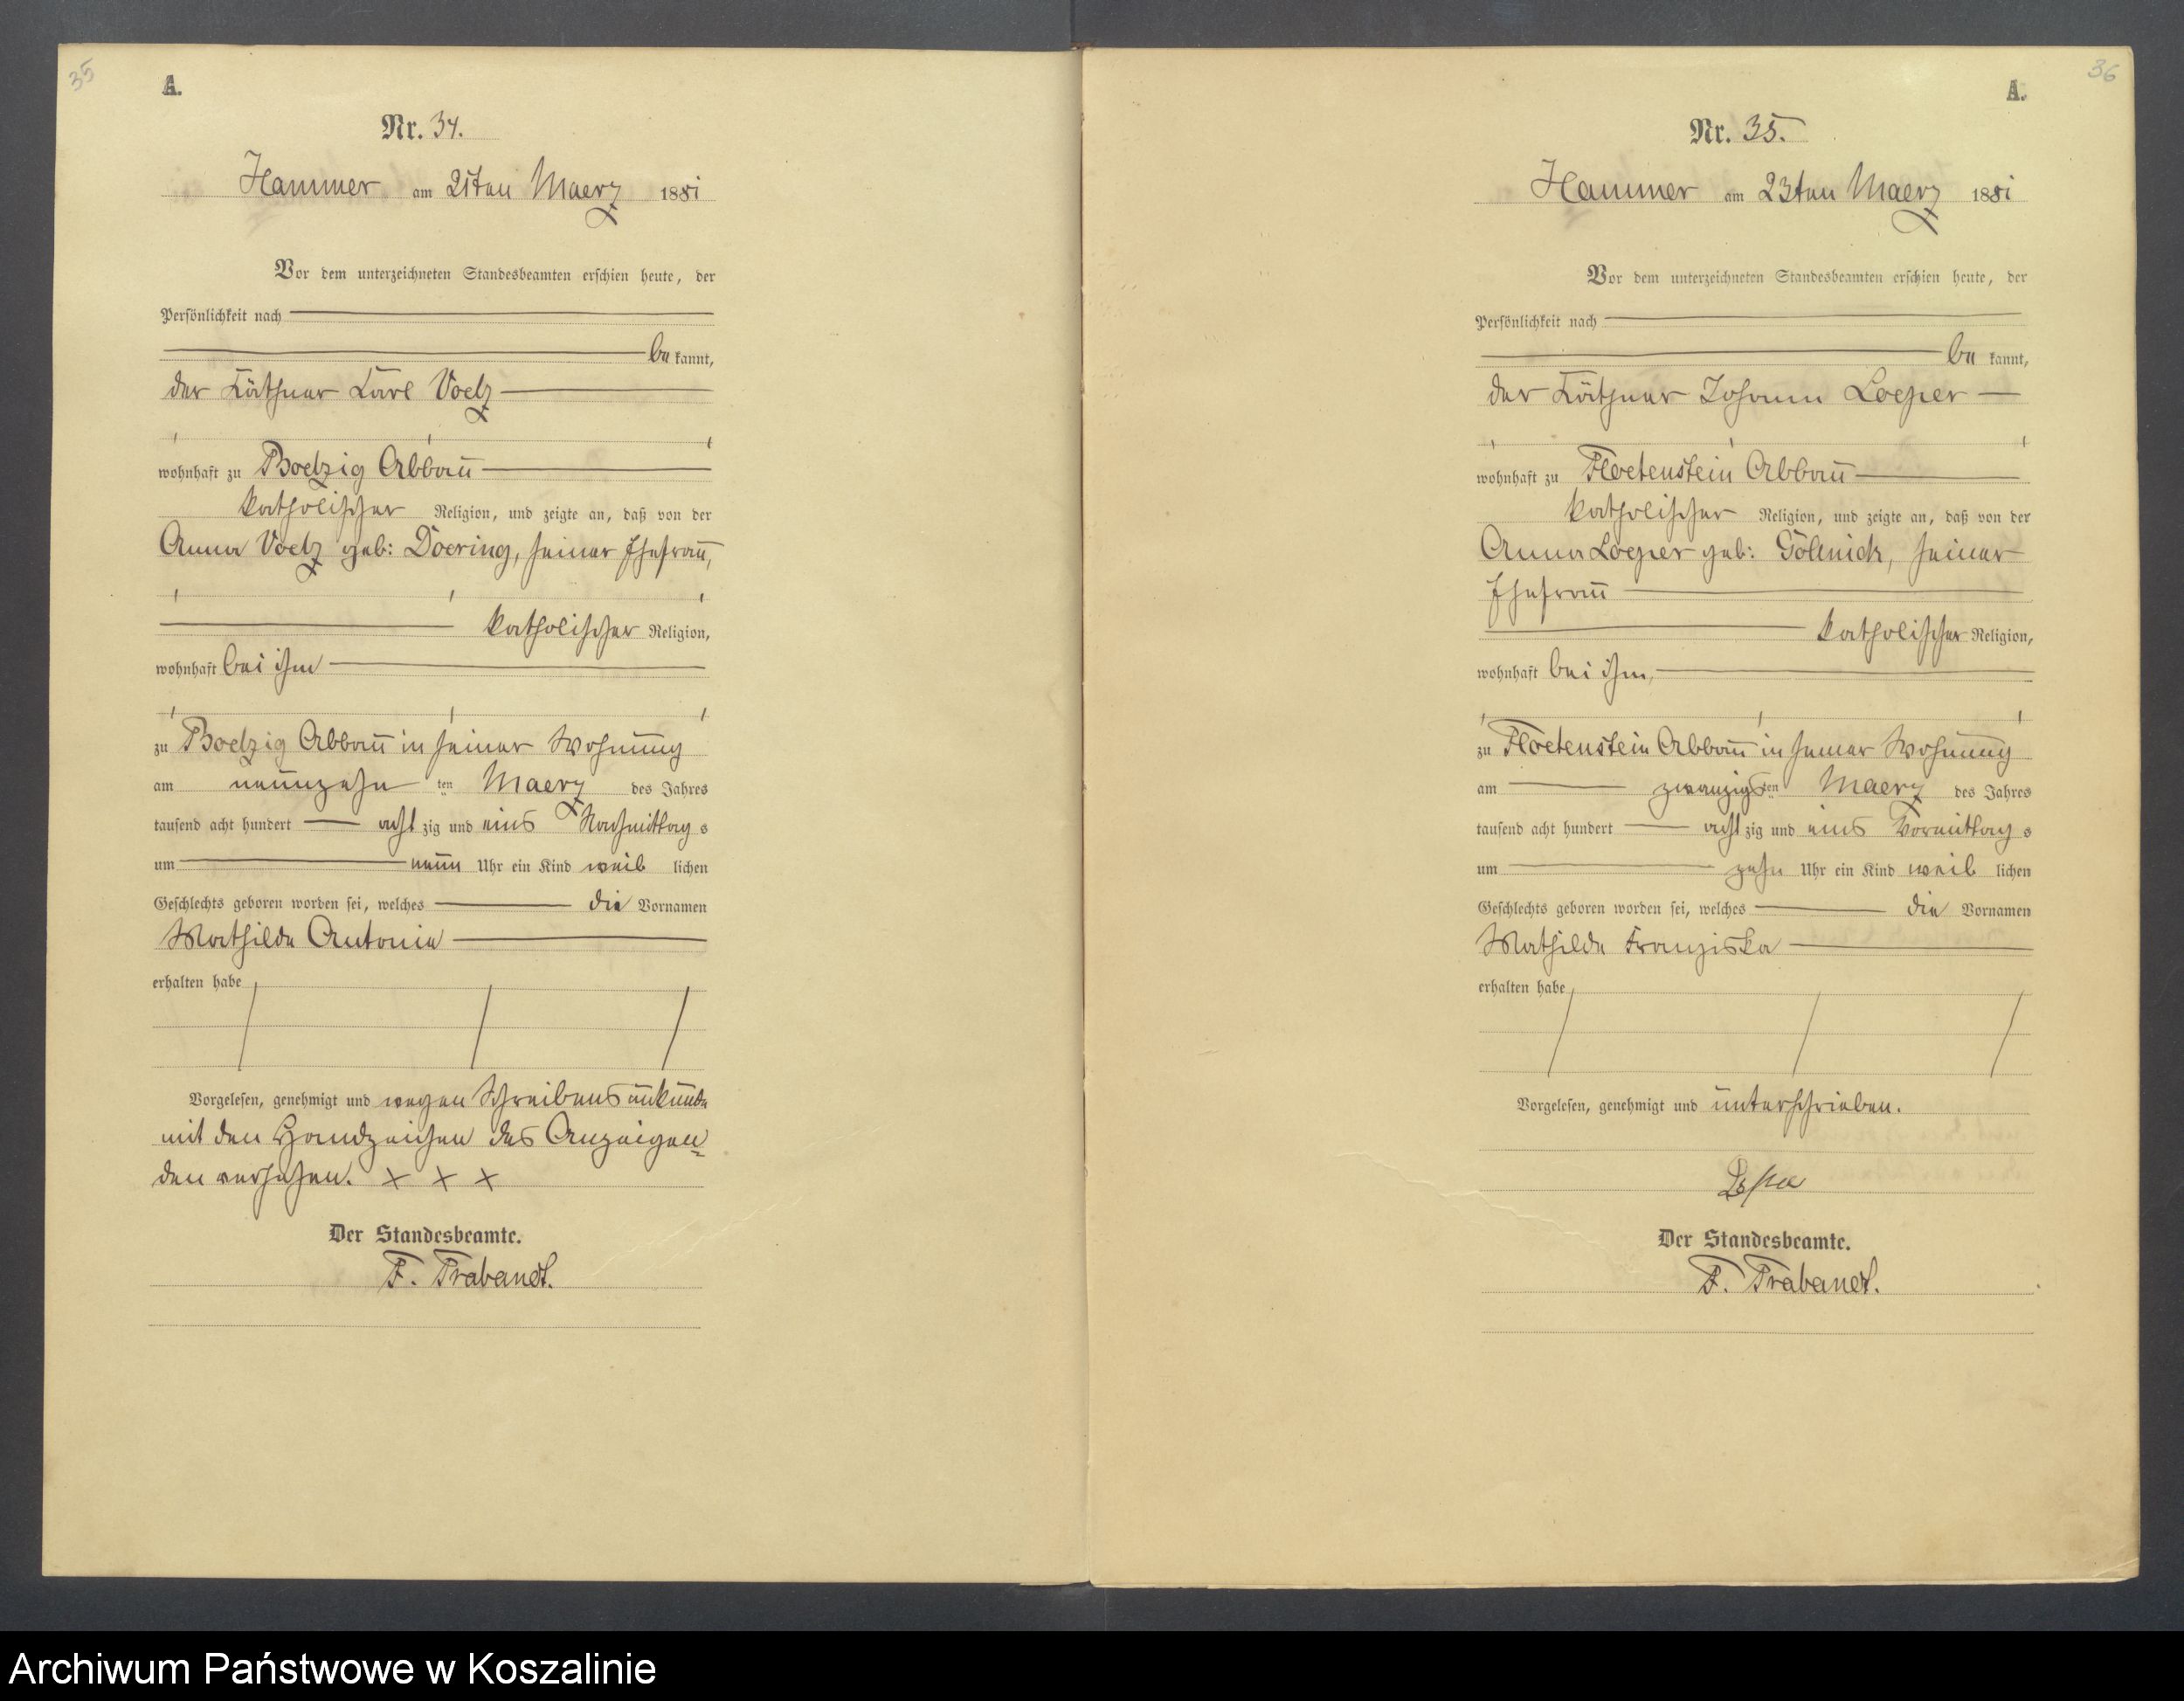 35
A.
Nr. 34.
Hammer am 21ten Maerz 1881
Vor dem unterzeichneten Standesbeamten erschien heute, der
Persönlichkeit nach
be kannt,
der Käthner Carl Voelz
wohnhaft zu Boelzig Abbau
katholischer Religion, und zeigte an, daß von der
Anna Voelz geb: Doering, seiner Ehefrau,
katholischer Religion,
wohnhaft bei ihm
zu Boelzig Abbau in seiner Wohnung
am neunzehn ten Maerz des Jahres
tausend acht hundert acht zig und eins Nachmittag s
um neun Uhr ein Kind weib lichen
Geschlechts geboren worden sei, welches die Vornamen
Mathilde Antonie
erhalten habe
Vorgelesen, genehmigt und wegen Schreibensunkunde
mit den Handzeichen des Anzeigen
den versehen. X X X
Der Standesbeamte.
F. Trabandt.
36
A.
Nr. 35.
Hammer am 23ten Maerz 1881
Vor dem unterzeichneten Standesbeamten erschien heute, der
Persönlichkeit nach
be kannt,
der Käthner Johann Loeper
wohnhaft zu Floetenstein Abbau
katholischer Religion, und zeigte an, daß von der
Anna Loeper geb: Gollnick, seiner
Ehefrau
katholischer Religion,
wohnhaft bei ihm,
zu Floetenstein Abbau in seiner Wohnung
am zwanzigsten Maerz des Jahres
tausend acht hundert acht zig und eins Vormittag s
um zehn Uhr ein Kind weib lichen
Geschlechts geboren worden sei, welches die Vornamen
Mathilde Franziska
erhalten habe
Vorgelesen, genehmigt und unterschrieben.
Der Standesbeamte.
F. Trabandt.
Archiwum Państwowe w Koszalinie